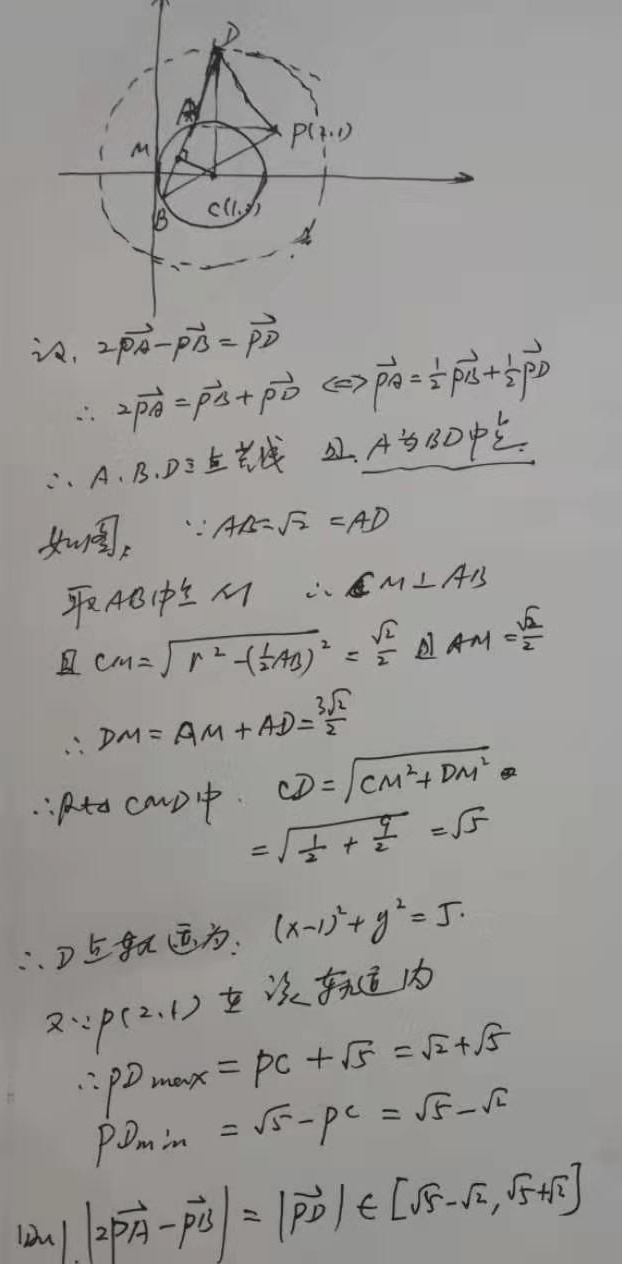 D
A
P(2,1)
M
B
C(1,0)
设, 2PA⃗-PB⃗=PD⃗
∴ 2PA⃗=PB⃗+PD⃗ ⟺ PA⃗=½PB⃗+½PD⃗
∴ A.B.D三点共线 且 A为BD中点.
如图, ∵AB=√2=AD
取AB中点M ∴CM⊥AB
且 CM=√(r²-(½AB)²)=√2/2 且 AM=√2/2
∴ DM=AM+AD=3√2/2
∴Rt△CMD中. CD=√(CM²+DM²)
=√(1/2+9/2)=√5
∴D点轨迹为: (x-1)²+y²=5.
又∵P(2.1)在该轨迹内
∴PDmax=PC+√5=√2+√5
PDmin=√5-PC=√5-√2
则|2PA⃗-PB⃗|=|PD⃗|∈[√5-√2,√5+√2]